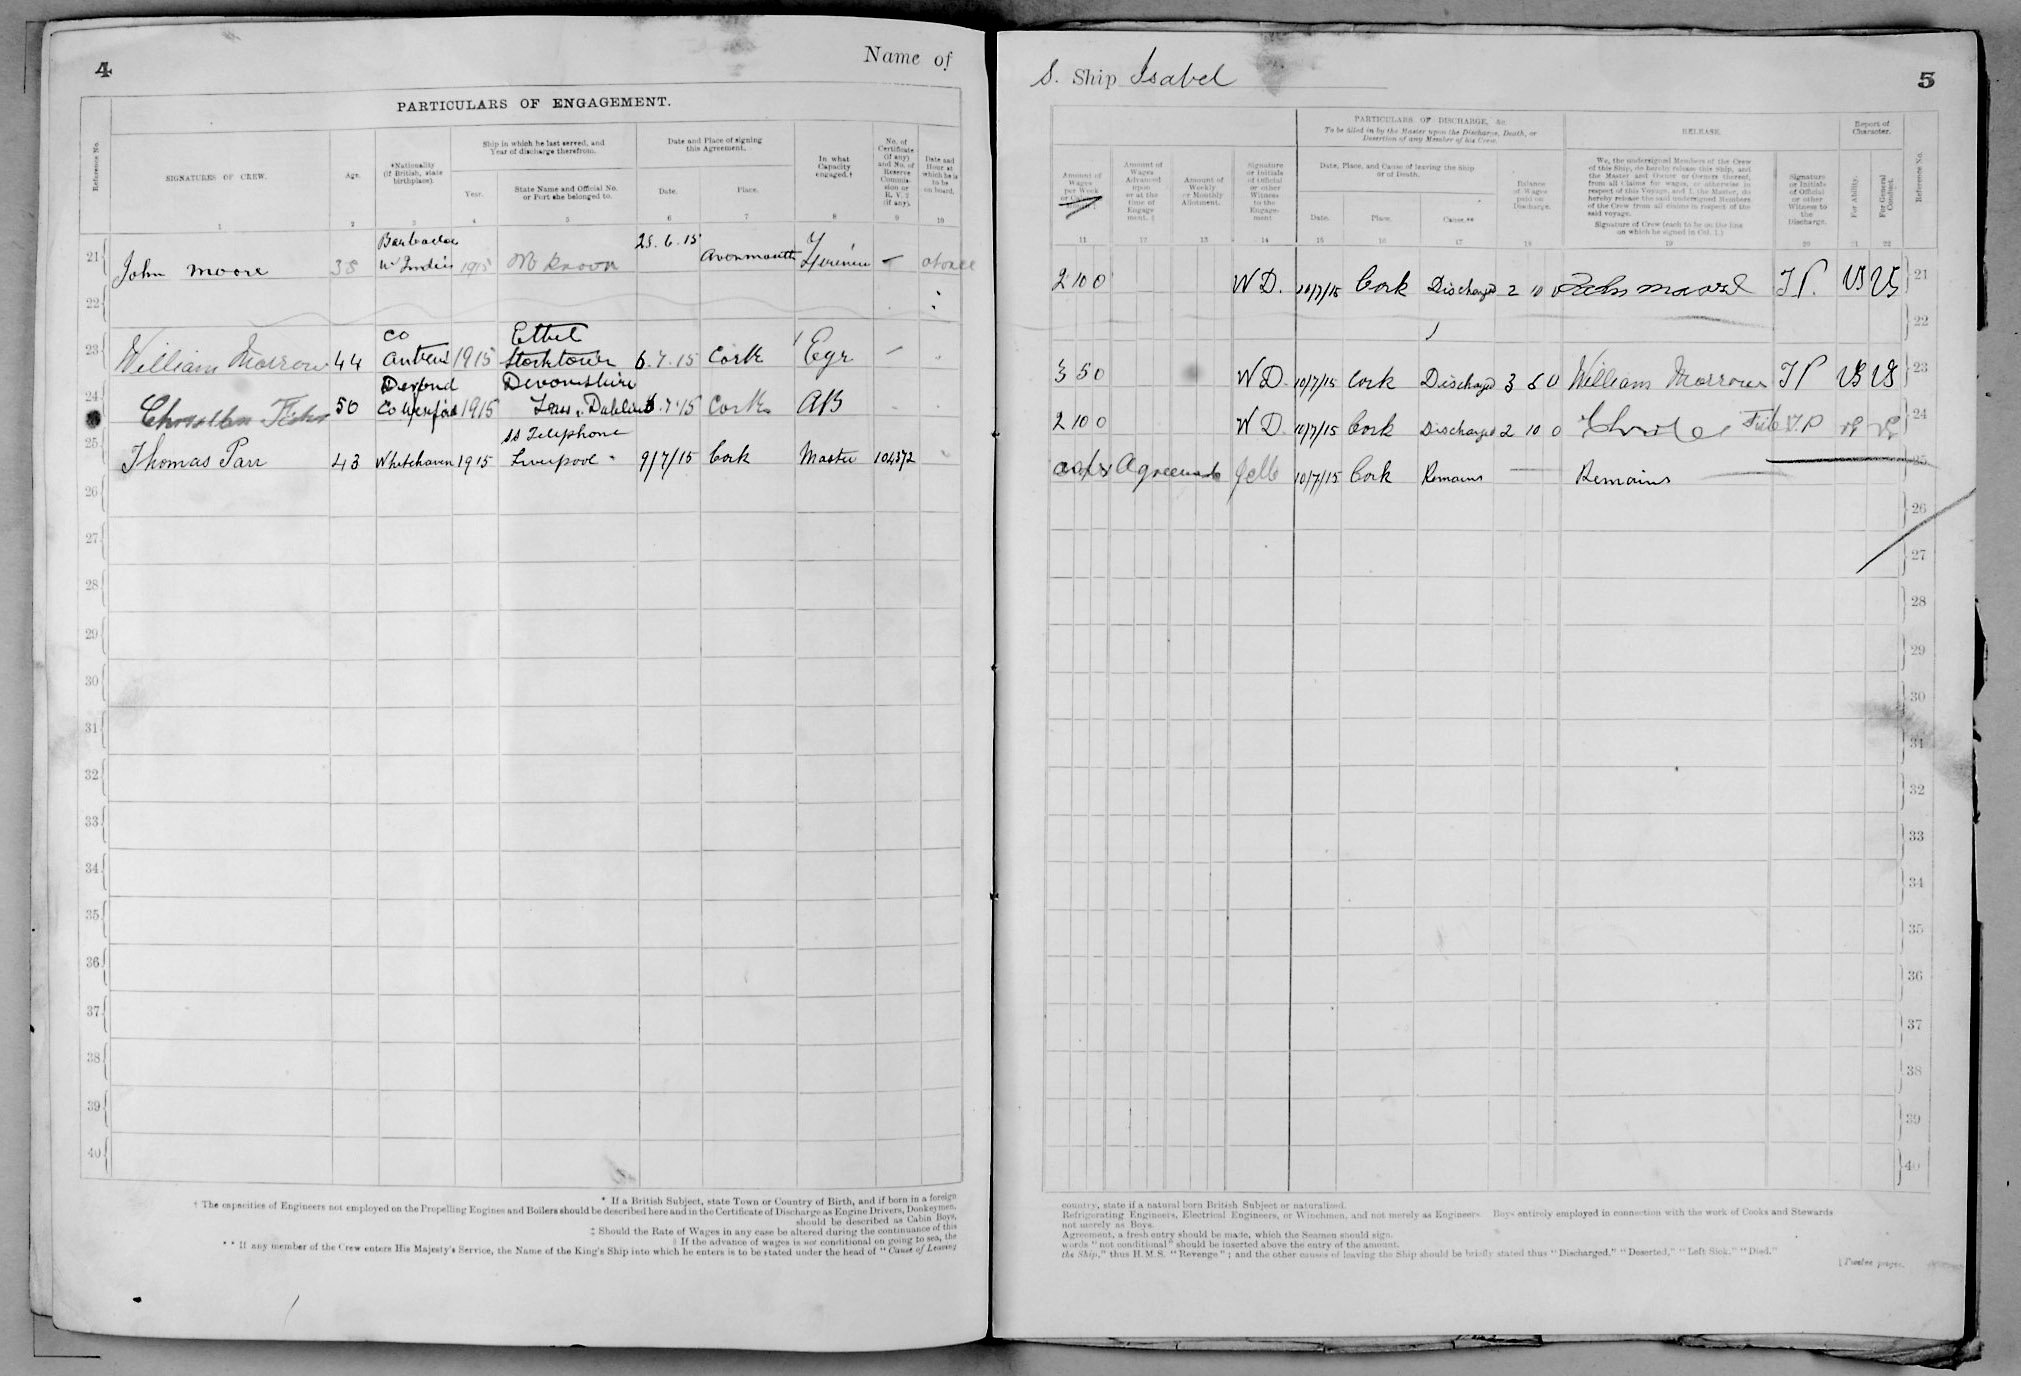 4
Name of
PARTICULARS OF ENGAGEMENT.
Reference No.
SIGNATURES OF CREW.
Age.
*Nationality
(if British, state
birthplace).
Ship in which he last served, and
Year of discharge therefrom.
Year.
State Name and Official No.
or Port she belonged to.
Date and Place of signing
this Agreement.
Date.
Place.
In what
Capacity
engaged.†
No. of
Certificate
(if any)
and No. of
Reserve
Commis-
sion or
R. V. 2
(if any).
Date and
Hour at
which he is
to be
on board.
1 2 3 4 5 6 7 8 9 10
Barbados 25.6.15
21 John Moore 38 W Indies 1915 Avonmouth
22
Co Ethel
23 William Morrow 44 Antrim 1915 6.7.15 Cork
Devonshire
24 50 Co Wexford 1915 Lass, Dublin 6.7.15 Cork AB
SS Telephone
25 Thomas Parr 43 Whitehaven 1915 Liverpool 9/7/15 Cork Master 104372
26
27
28
29
30
31
32
33
34
35
36
37
38
39
40
* If a British Subject, state Town or Country of Birth, and if born in a foreign
† The capacities of Engineers not employed on the Propelling Engines and Boilers should be described here and in the Certificate of Discharge as Engine Drivers, Donkeymen,
should be described as Cabin Boys,
‡ Should the Rate of Wages in any case be altered during the continuance of this
§ If the advance of wages is not conditional on going to sea, the
* * If any member of the Crew enters His Majesty's Service, the Name of the King's Ship into which he enters is to be stated under the head of "Cause of Leaving
S. Ship Isabel
5
Amount of
Wages
per Week
Amount of
Wages
Advanced
upon
or at the
time of
Engage-
ment. §
Amount of
Weekly
or Monthly
Allotment.
Signature
or Initials
of Official
or other
Witness
to the
Engage-
ment
PARTICULARS OF DISCHARGE, &c.
To be filled in by the Master upon the Discharge, Death, or
Desertion of any Member of his Crew.
Date, Place, and Cause of leaving the Ship
or of Death.
Date.
Place.
Cause.**
Balance
of Wages
paid on
Discharge.
RELEASE.
We, the undersigned Members of the Crew
of this Ship, do hereby release this Ship, and
the Master and Owner or Owners thereof,
from all Claims for wages, or otherwise in
respect of this Voyage, and I, the Master, do
hereby release the said undersigned Members
of the Crew from all claims in respect of the
said voyage.
Signature of Crew (each to be on the line
on which he signed in Col. 1.)
Signature
or Initials
of Official
or other
Witness to
the
Discharge.
Report of
Character.
For Ability.
For General
Conduct.
Reference No.
11 12 13 14 15 16 17 18 19 20 21 22
2 10 0 W D. Cork Discharged 2 10 0 John Moore T P. VG VG 21
22
3 5 0 W D. 10/7/15 Cork Discharged 3 5 0 William Morrow T P VG VG 23
2 10 0 W D. 10/7/15 Cork Discharged 2 10 0 T.P VG VG 24
as per Agreement 10/7/15 Cork Remains — Remains 25
26
27
28
29
30
31
32
33
34
35
36
37
38
39
40
country, state if a natural born British Subject or naturalized.
Refrigerating Engineers, Electrical Engineers, or Winchmen, and not merely as Engineers. Boys entirely employed in connection with the work of Cooks and Stewards
not merely as Boys.
Agreement, a fresh entry should be made, which the Seamen should sign.
words "not conditional" should be inserted above the entry of the amount.
the Ship," thus H.M.S. "Revenge"; and the other causes of leaving the Ship should be briefly stated thus "Discharged," "Deserted," "Left Sick," "Died."
[Twelve pages.